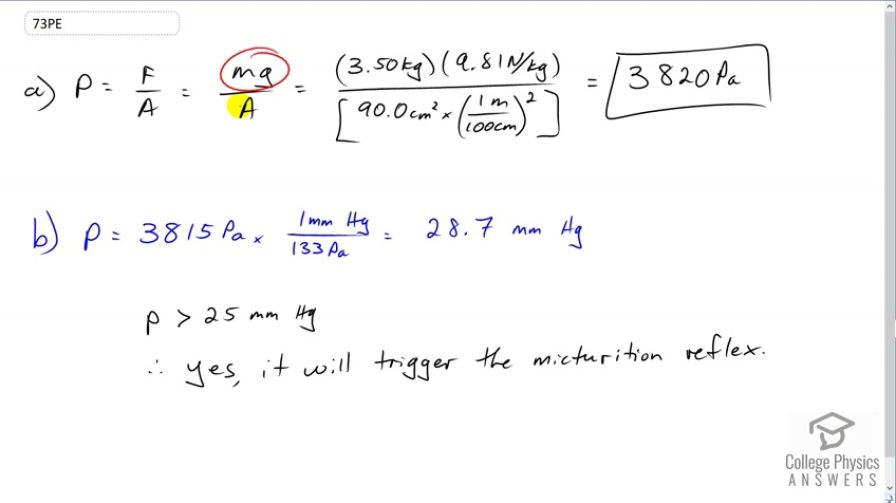 73PE
a) P = F/A = mg/A = (3.50kg)(9.81N/kg)/[90.0cm² × (1m/100cm)²] = 3820Pa
b) P = 3815Pa × 1mm Hg/133Pa = 28.7 mm Hg
P > 25 mm Hg
∴ yes, it will trigger the micturition reflex.
College Physics
ANSWERS